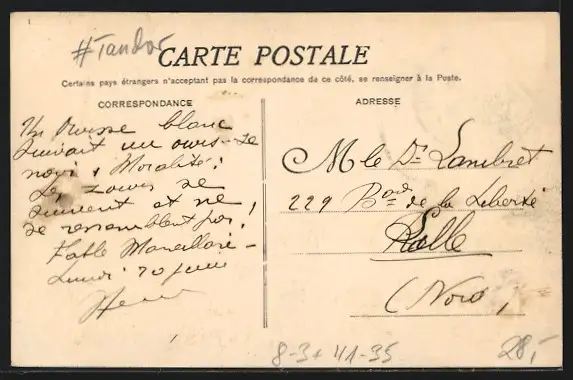 #Tandor
CARTE POSTALE
Certains pays étrangers n'acceptant pas la correspondance de ce côté, se renseigner à la Poste.
CORRESPONDANCE
Un Ourse blanc
suivant un ours-se
noir : Moralité :
Les z'ours se
suivent et ne
se ressemblent pas !
Fable Marseillaise -
Lundi 20 juin
ADRESSE
M le Dr Lambret
229 Bard de la Liberté
Lille
(Nord)
8-3+ 41-35
28,-